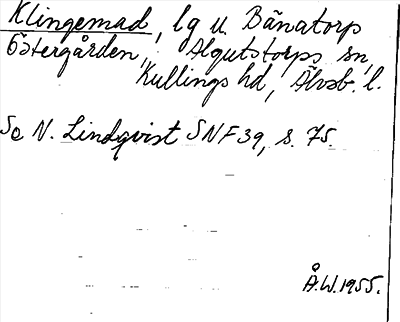 Klingemad, lg u. Bänatorp
Östergården, Algutstorps sn,
Kullings hd, Älvsb. l.
Se N. Lindqvist SNF 39, s. 75.
Å.W. 1955.